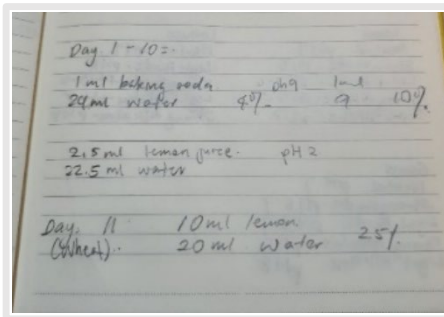 Day 1 - 10 =
1 ml baking soda ph9 1 ml
24 ml water 4% 9 10%
2.5 ml lemon juice. pH 2
22.5 ml water
Day 11 10 ml lemon
(Wheat).. 20 ml water 25%